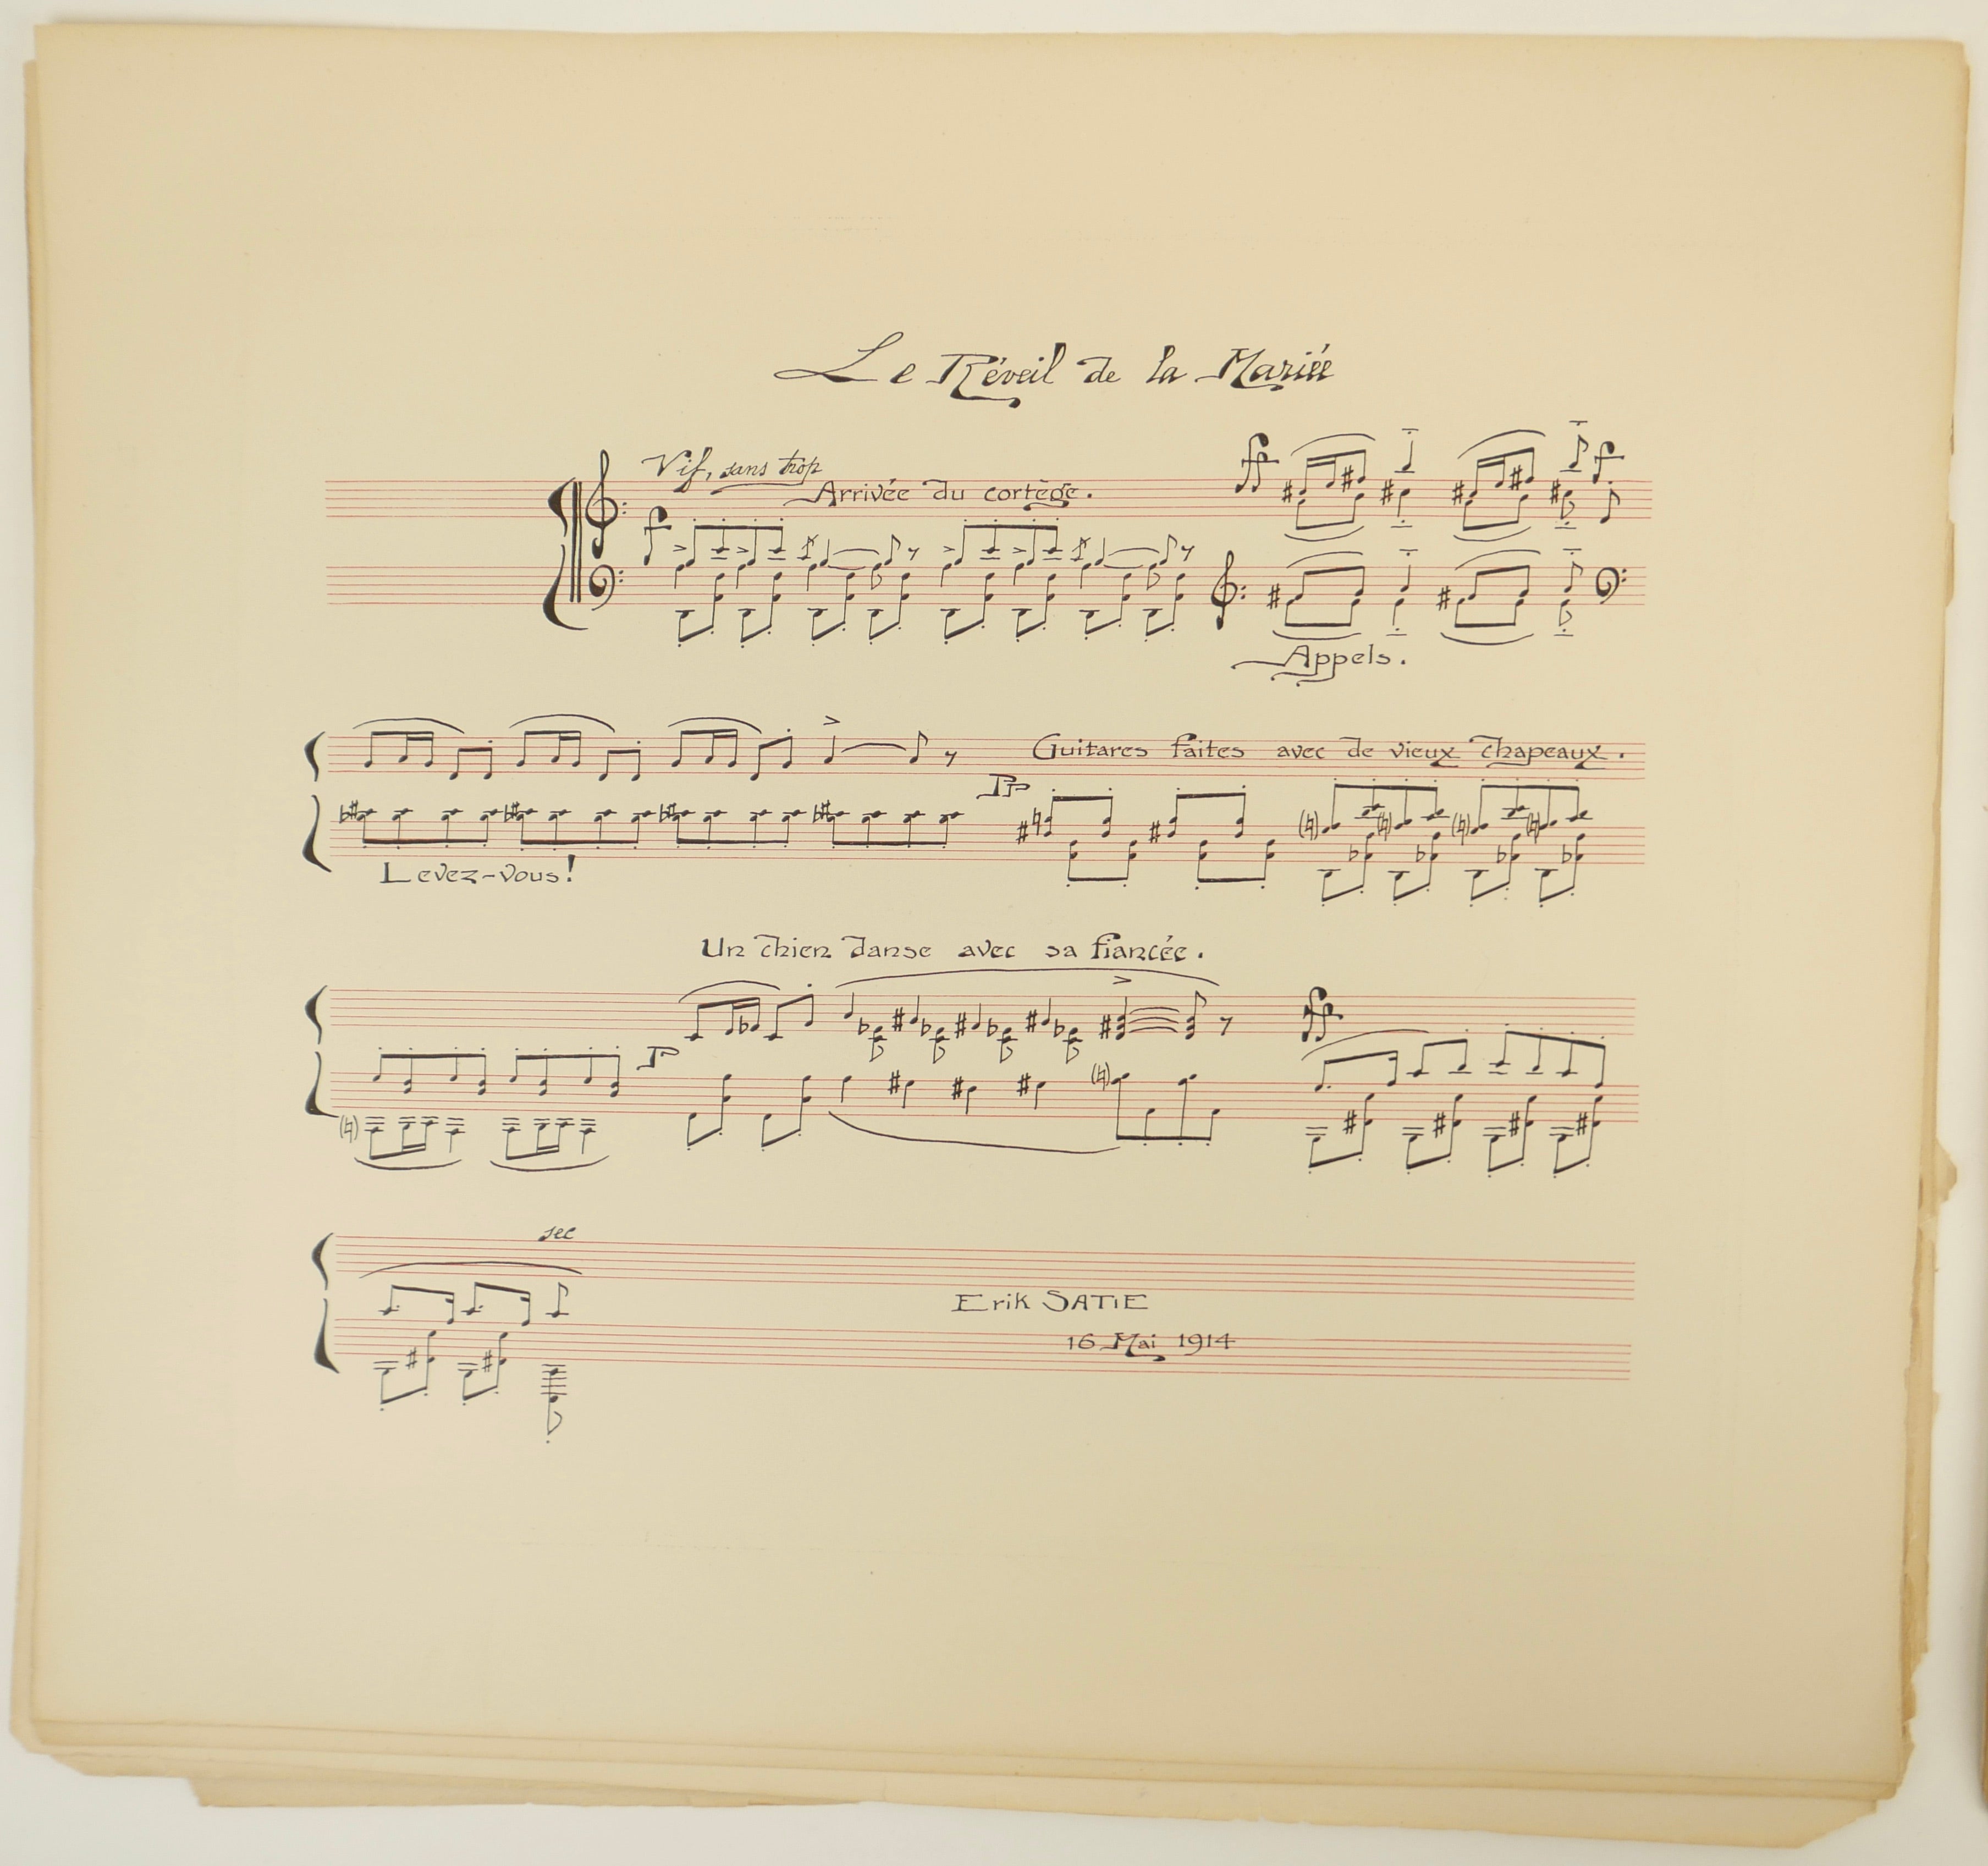 Le Réveil de la Mariée
Vif, sans trop
Arrivée du cortège.
ff
f
f
Appels.
Guitares faites avec de vieux chapeaux.
Pp
Levez-vous!
Un chien danse avec sa fiancée.
ff
P
sec
Erik SATIE
16 Mai 1914